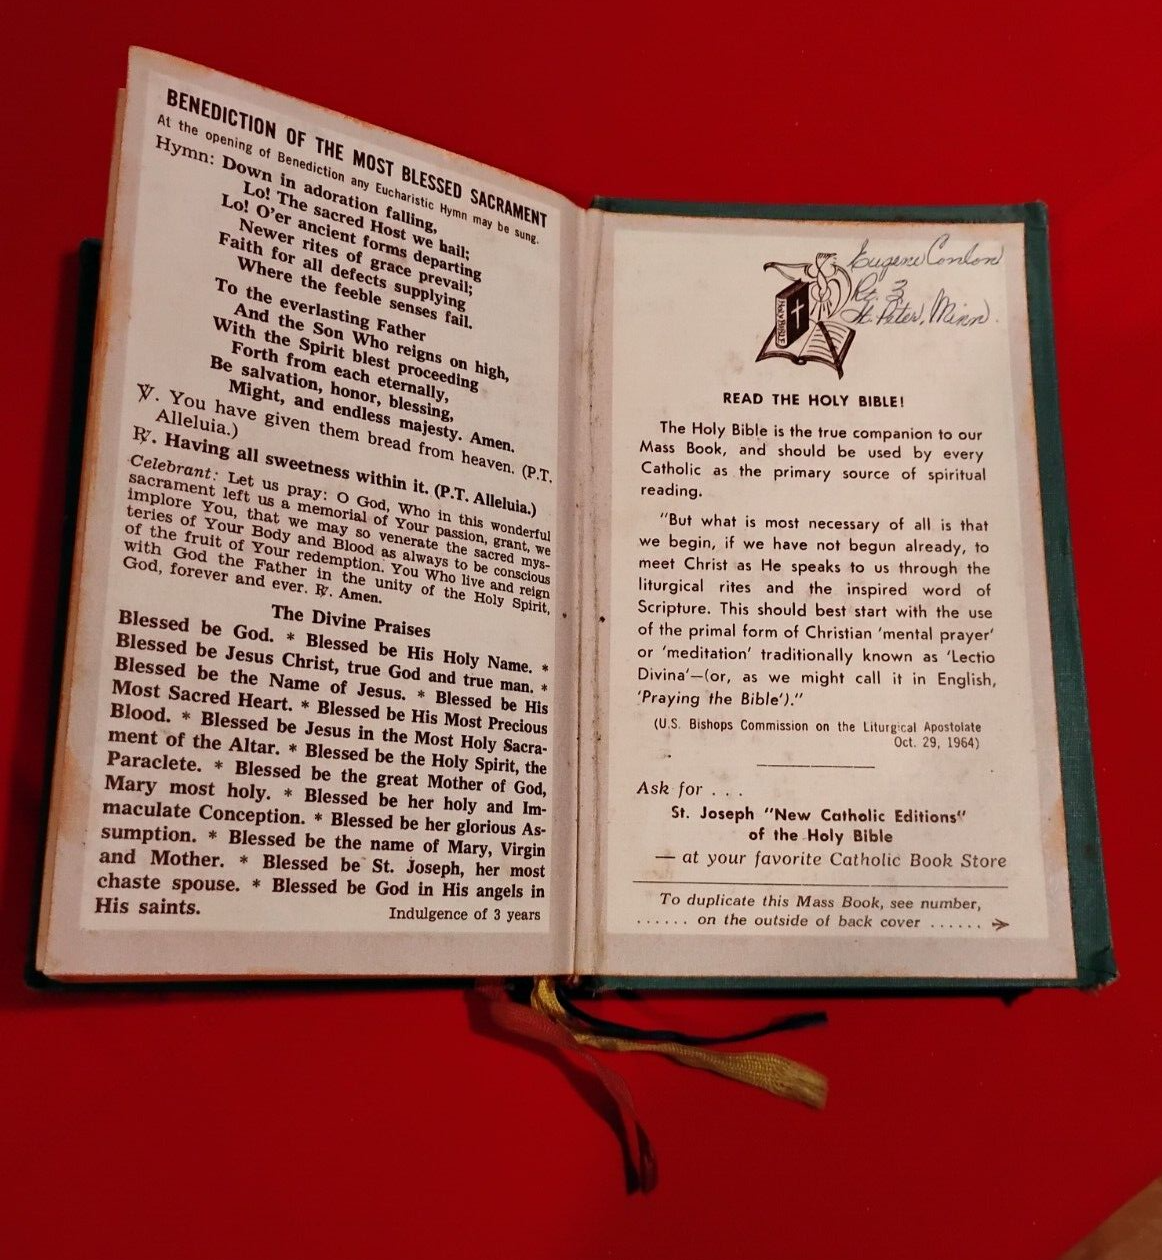 BENEDICTION OF THE MOST BLESSED SACRAMENT
At the opening of Benediction any Eucharistic Hymn may be sung.
Hymn: Down in adoration falling,
Lo! The sacred Host we hail;
Lo! O'er ancient forms departing
Newer rites of grace prevail;
Faith for all defects supplying
Where the feeble senses fail.
To the everlasting Father
And the Son Who reigns on high,
With the Spirit blest proceeding
Forth from each eternally,
Be salvation, honor, blessing,
Might, and endless majesty. Amen.
℣. You have given them bread from heaven. (P.T.
Alleluia.)
℟. Having all sweetness within it. (P.T. Alleluia.)
Celebrant: Let us pray: O God, Who in this wonderful
sacrament left us a memorial of Your passion, grant, we
implore You, that we may so venerate the sacred mys-
teries of Your Body and Blood as always to be conscious
of the fruit of Your redemption. You Who live and reign
with God the Father in the unity of the Holy Spirit,
God, forever and ever. ℟. Amen.
The Divine Praises
Blessed be God. * Blessed be His Holy Name. *
Blessed be Jesus Christ, true God and true man. *
Blessed be the Name of Jesus. * Blessed be His
Most Sacred Heart. * Blessed be His Most Precious
Blood. * Blessed be Jesus in the Most Holy Sacra-
ment of the Altar. * Blessed be the Holy Spirit, the
Paraclete. * Blessed be the great Mother of God,
Mary most holy. * Blessed be her holy and Im-
maculate Conception. * Blessed be her glorious As-
sumption. * Blessed be the name of Mary, Virgin
and Mother. * Blessed be St. Joseph, her most
chaste spouse. * Blessed be God in His angels in
His saints.
Indulgence of 3 years
Eugene Conlon
Rt. 3
St. Peter, Minn.
HOLY BIBLE
READ THE HOLY BIBLE!
The Holy Bible is the true companion to our
Mass Book, and should be used by every
Catholic as the primary source of spiritual
reading.
"But what is most necessary of all is that
we begin, if we have not begun already, to
meet Christ as He speaks to us through the
liturgical rites and the inspired word of
Scripture. This should best start with the use
of the primal form of Christian 'mental prayer'
or 'meditation' traditionally known as 'Lectio
Divina'—(or, as we might call it in English,
'Praying the Bible')."
(U.S. Bishops Commission on the Liturgical Apostolate
Oct. 29, 1964)
Ask for . . .
St. Joseph "New Catholic Editions"
of the Holy Bible
— at your favorite Catholic Book Store
To duplicate this Mass Book, see number,
...... on the outside of back cover ......